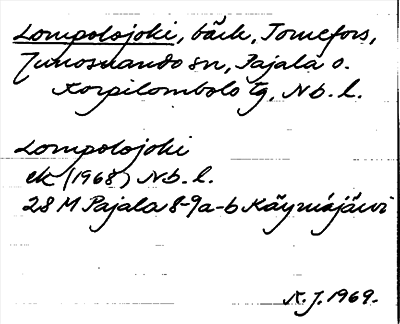 Lompolojoki, bäck, Tornefors,
Junosuando sn, Pajala o.
Korpilombolo tg, Nb. l.
Lompolojoki
ek (1968) Nb. l.
28 M Pajala 8-9a-b Käymäjärvi
K. J. 1969.